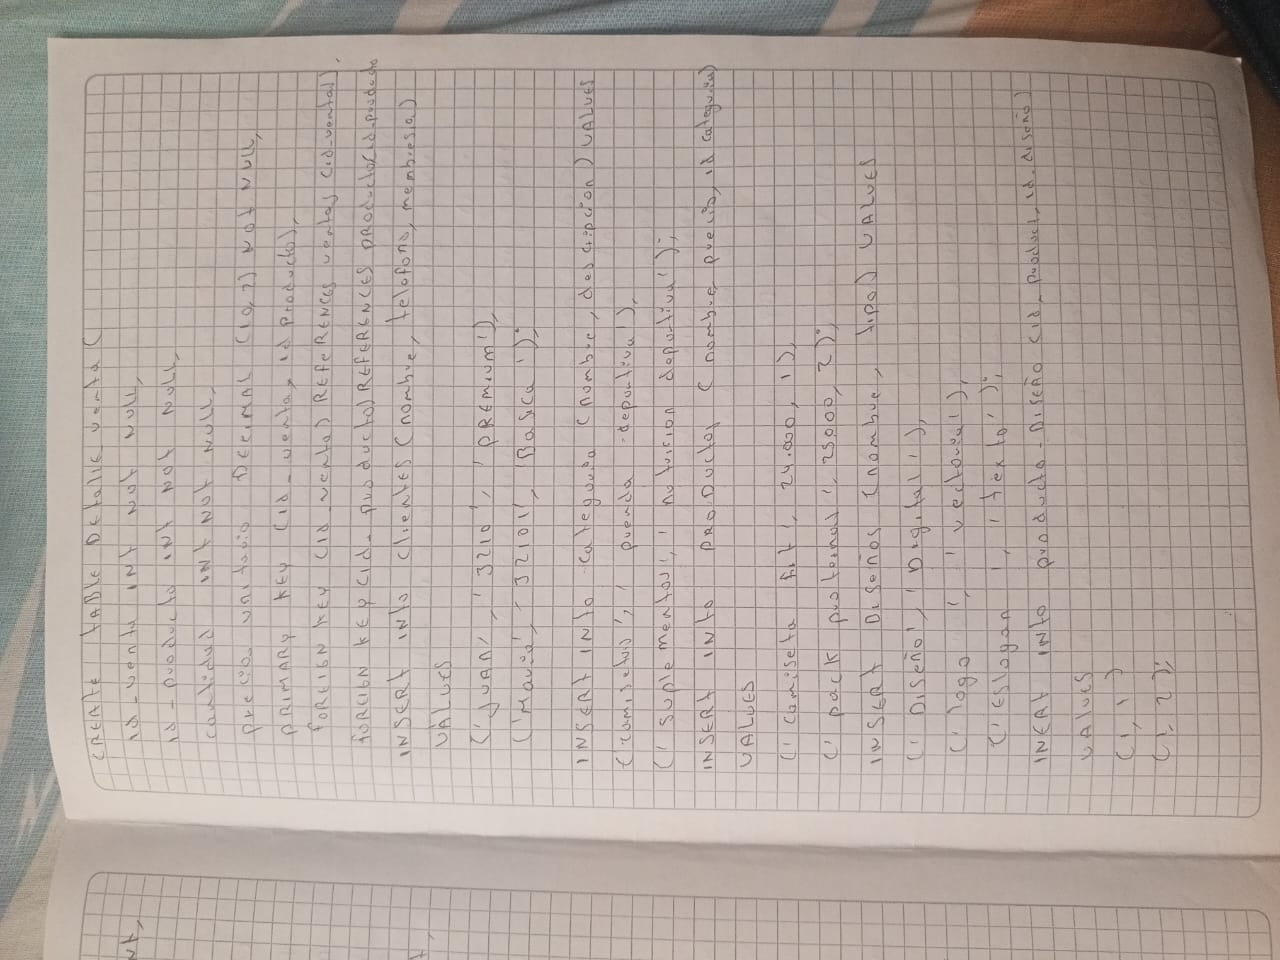 CREATE TABLE Detalle_venta (
id_venta INT NOT NULL,
id_producto INT NOT NULL,
cantidad INT NOT NULL,
precio_unitario DECIMAL (10,2) NOT NULL,
PRIMARY KEY (id_venta, id producto),
FOREIGN KEY (id_venta) REFERENCES ventas (id_venta),
FOREIGN KEY (id_producto) REFERENCES producto(id_producto
INSERT INTO Clientes (nombre, telefono, membresa)
VALUES
('JUAN', '3210', 'PREMIUM'),
('Maria', '32101', 'Basica');
INSERT INTO categoria (nombre, descripcion) VALUES
('camisetas', 'prenda deportiva'),
('suplementos', 'nutricion deportiva');
INSERT INTO PRODUCTOS (nombre, precio, id categoria)
VALUES
('camiseta fit, 24.000, 1),
(' pack proteinas', 25000, 2);
INSERT DISEÑOS (nombre, tipo) VALUES
(' Diseño', 'Digital'),
(' logo ', ' vectorial),
(' Eslogan ', 'texto');
INERT INTO producto_DISEÑO (id_product, id.diseño)
VALUES
(1, 1)
(1, 2);
nt,
t,